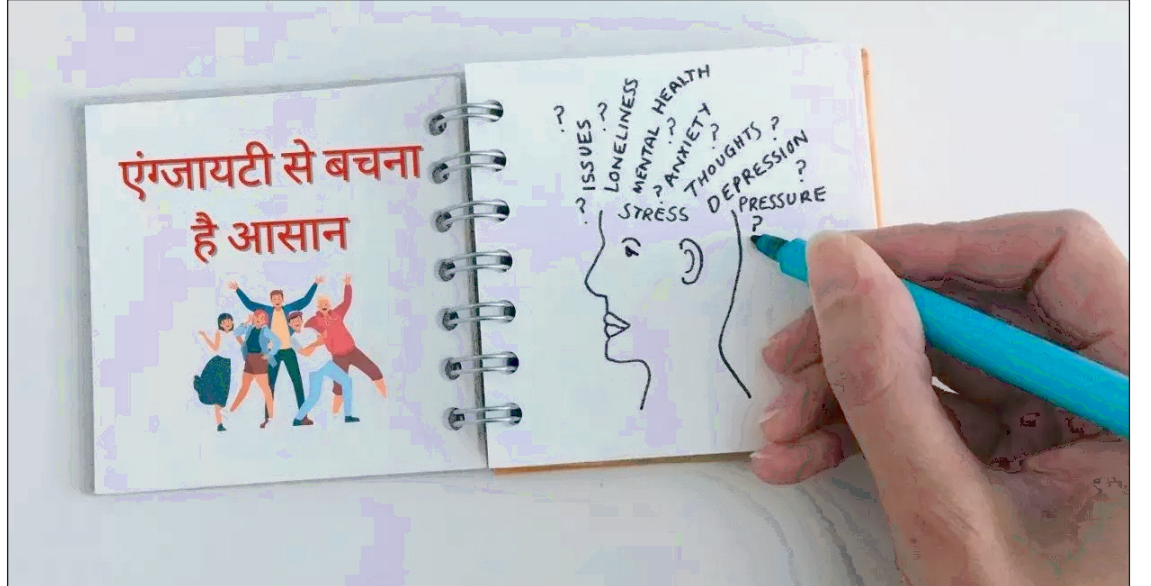 एंग्जायटी से बचना
है आसान
? ISSUES ?
LONELINESS
MENTAL HEALTH
? ANXIETY ?
?
THOUGHTS ?
DEPRESSION
?
? STRESS
PRESSURE
?